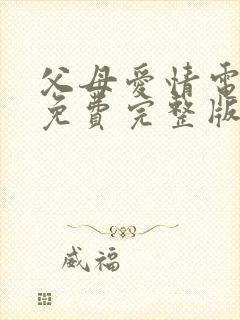 父母愛情電
免費完整版
威福